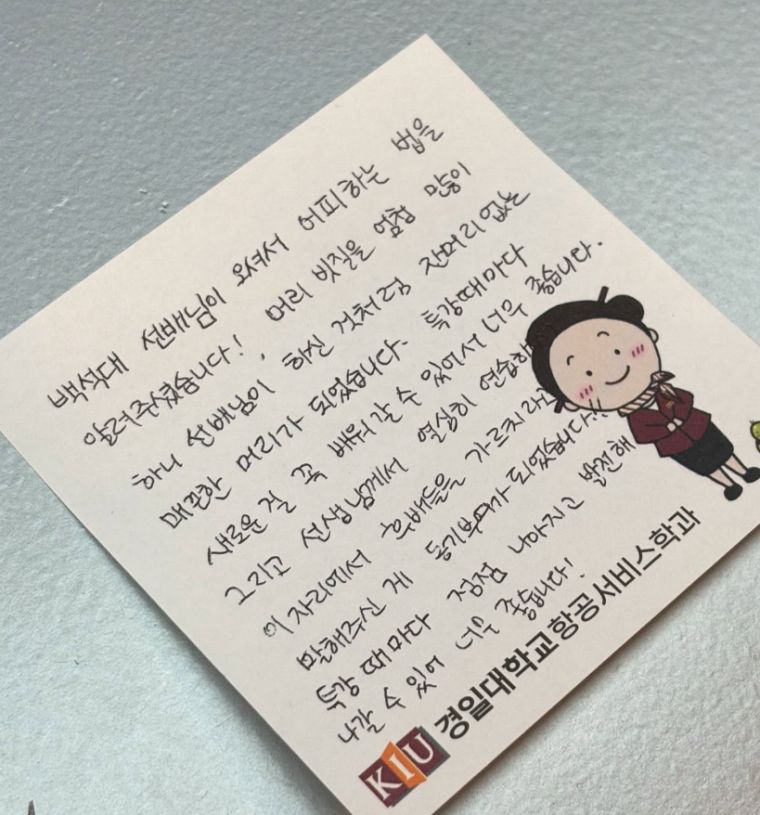 백석대 선배님이 오셔서 어피하는 법을
알려주셨습니다! 머리 빗질을 엄청 많이
하니 선배님이 하신 것처럼 잔머리 없는
매끈한 머리가 되었습니다. 특강때마다
새로운 걸 꼭 배워갈 수 있어서 너무 좋습니다.
그리고 선생님께서 열심히 연습하
이 자리에서 후배들을 가르치라고
말해주신 게 동기부여가 되었습니다.
특강 때마다 점점 나아지고 발전해
나갈 수 있어 너무 좋습니다!
KIU 경일대학교항공서비스학과